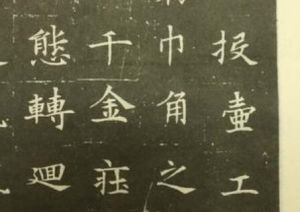 投壺工
巾角之
千金庒
態轉迴